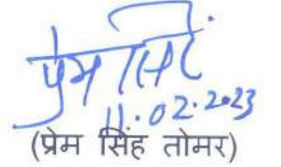 प्रेम सिंह
11.02.2023
(प्रेम सिंह तोमर)